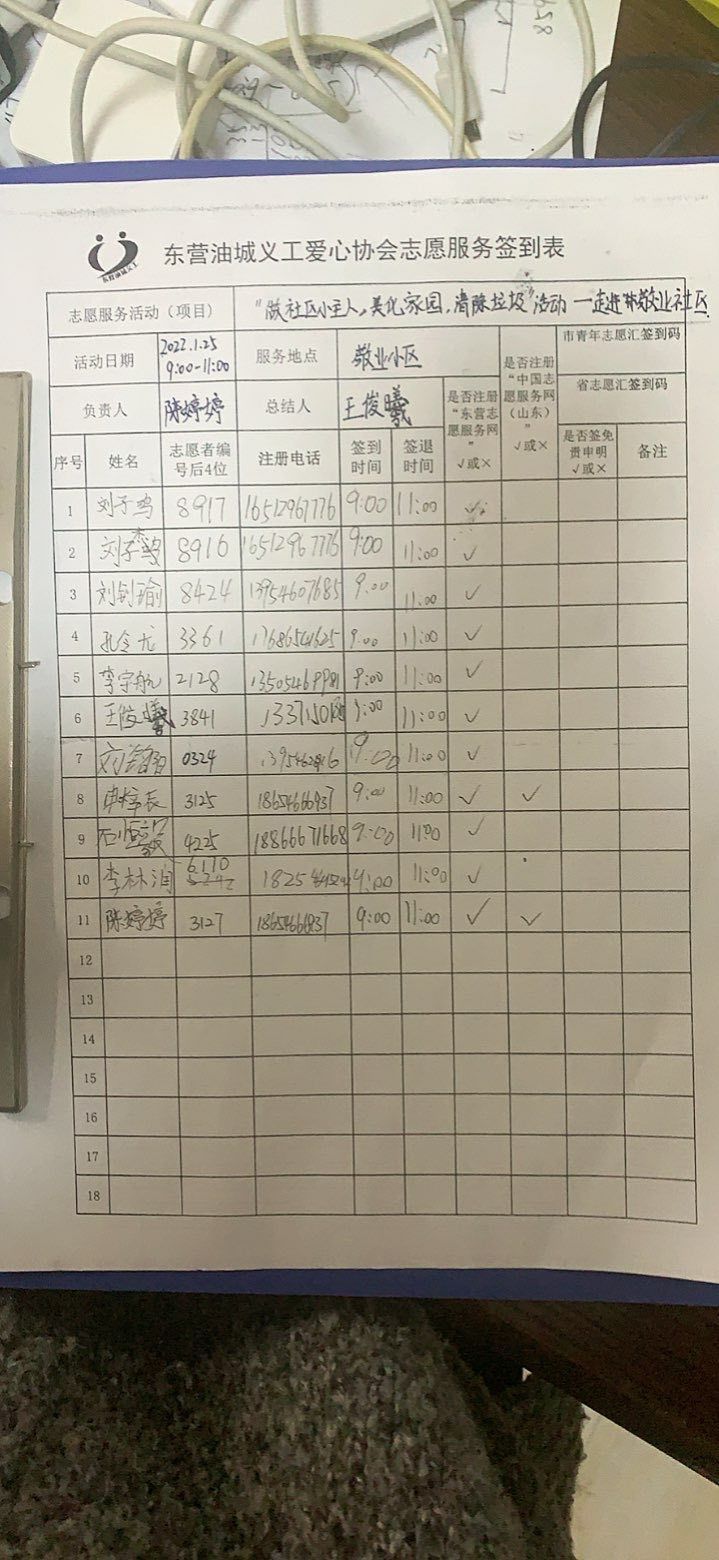 东营油城义工
东营油城义工爱心协会志愿服务签到表
志愿服务活动（项目） "做社区小主人，美化家园，清除垃圾"活动 一走进 敬业社区
活动日期 2022.1.25 9:00-11:00 服务地点 敬业小区 是否注册"中国志愿服务网（山东）" √或× 市青年志愿汇签到码
省志愿汇签到码
负责人 陈婷婷 总结人 王俊曦 是否注册"东营志愿服务网" √或×
序号 姓名 志愿者编号后4位 注册电话 签到时间 签退时间 是否签免责申明 √或× 备注
1 刘子鸣 8917 16512967776 9:00 11:00 √
2 8916 16512967776 9:00 11:00 √
3 刘钊瑜 8424 13954607685 9:00 11:00 √
4 孔令尤 3361 9:00 11:00 √
5 李宇航 2128 9:00 11:00 √
6 王俊曦 3841 9:00 11:00 √
7 0324 9:00 11:00 √
8 3125 9:00 11:00 √ √
9 4225 18866671668 9:00 11:00 √
10 李林润 6170 9:00 11:00 √
11 陈婷婷 3127 9:00 11:00 √ √
12
13
14
15
16
17
18